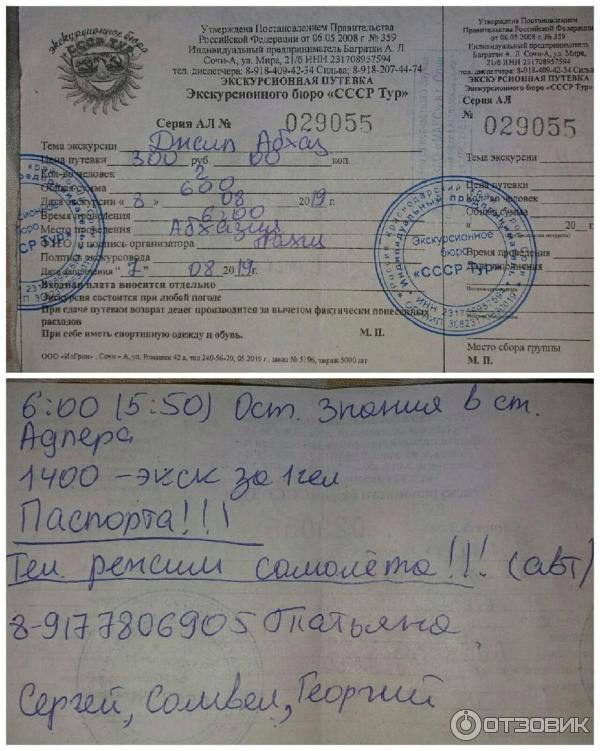 экскурсионное бюро
"СССР Тур"
Утверждена Постановлением Правительства
Российской Федерации от 06.05 2008 г. № 359
Индивидуальный предприниматель Багратян А. Л.
Сочи-А, ул. Мира, 21/6 ИНН 231708957594
тел. диспетчера: 8-918-409-42-34 Сильва; 8-918-207-44-74
ЭКСКУРСИОННАЯ ПУТЕВКА
Экскурсионного бюро «СССР Тур»
Серия АЛ № 029055
Тема экскурсии Джип Абхаз
Цена путевки 300 руб. 00 коп.
Кол-во человек 2
Общая сумма 600
Дата экскурсии « 8 » 08 2019г.
Время проведения 6:00
Место проведения Абхазия
Ф.И.О., подпись организатора
Подпись экскурсовода
Дата заполнения " 7 " 08 2019г.
Входная плата вносится отдельно
Экскурсия состоится при любой погоде
При сдаче путевки возврат денег производится за вычетом фактически понесенных
расходов
При себе иметь спортивную одежду и обувь. М. П.
ООО «ИлГрин», Сочи – А, ул. Ромашек 42 а, тел 240-56-70, 05.2019 г., заказ № 5196, тираж 5000 шт
Утверждена Постановлением
Правительства Российской
от 06.05 2008 г. №
Индивидуальный предприниматель
Сочи-А, ул. Мира,
21/6 ИНН 231708957594
тел. диспетчера: 8-918-409-42-34 Сильва
ЭКСКУРСИОННАЯ ПУТЕВКА
Экскурсионного бюро «СССР
Серия АЛ
№ 029055
Тема экскурсии
Цена путевки
Кол-во человек
Общая сумма
« 20
Время проведения
Дата заполнения
Место сбора группы
М. П.
Экскурсионное
бюро
«СССР Тур»
6:00 (5:50) Ост. Знания в ст.
Адлера
1400 – экск за 1 чел
Паспорта!!!
Тел. режим самолёта!!! (авт)
8-9177806905 Татьяна
Сергей, Самвел, Георгий
ОТЗОВИК